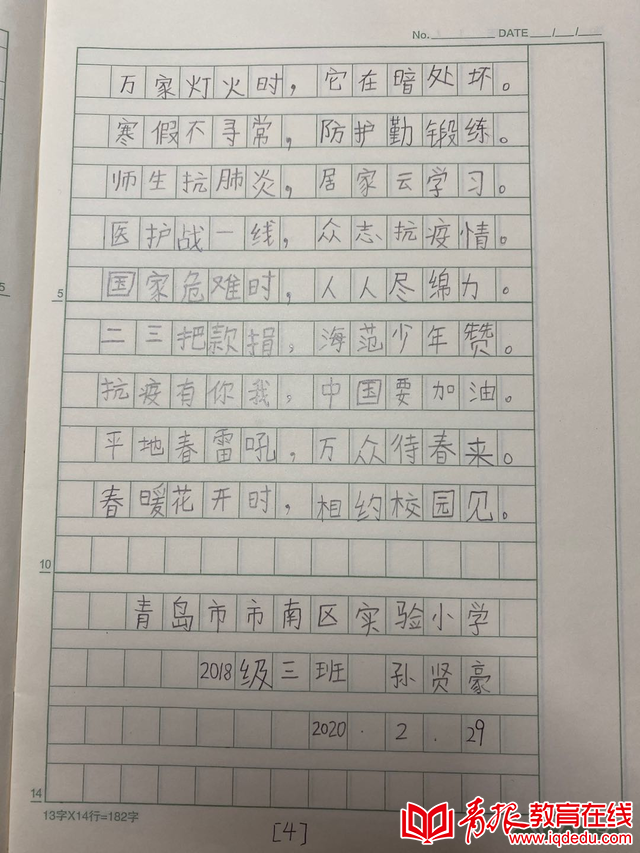 No. DATE / /
万家灯火时，它在暗处坏。
寒假不寻常，防护勤锻练。
师生抗肺炎，居家云学习。
医护战一线，众志抗疫情。
5
国家危难时，人人尽绵力。
5
二三把款捐，海范少年赞。
抗疫有你我，中国要加油。
平地春雷吼，万众待春来。
春暖花开时，相约校园见。
10
青岛市市南区实验小学
2018级三班 孙贤豪
2020.2.29
14
13字X14行=182字
[4]
青报教育在线
www.iqdedu.com